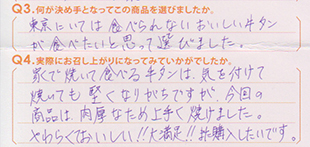 Q3.何が決め手となってこの商品を選びましたか。
東京にいては食べられないおいしい牛タン
が食べたいと思って選びました。
Q4.実際にお召し上がりになってみていかがでしたか。
家で焼いて食べる牛タンは、気を付けて
焼いても堅くなりがちですが、今回の
商品は、肉厚なため上手く焼けました。
やわらくておいしい!!大満足!!再購入したいです。